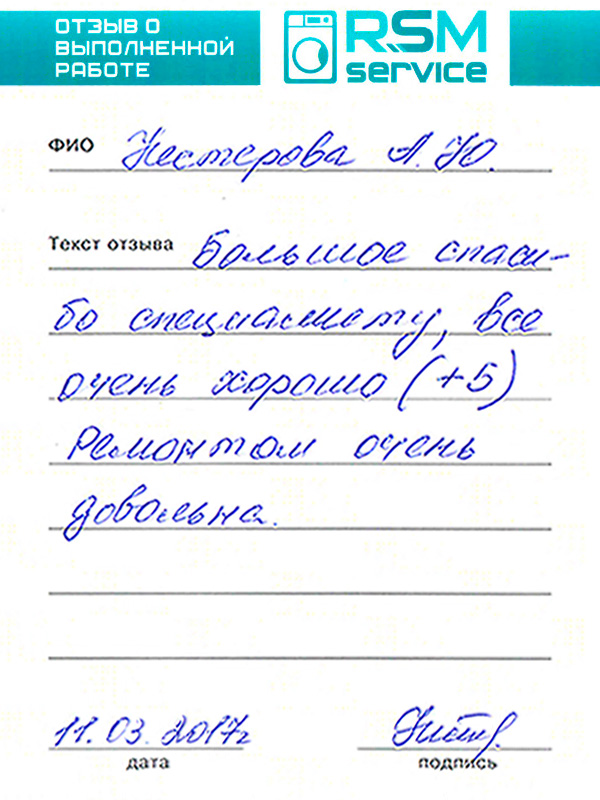 ОТЗЫВ О
ВЫПОЛНЕННОЙ
РАБОТЕ
RSM
service
ФИО Нестерова А.Ю.
Текст отзыва Большое спаси-
бо специалисту, все
очень хорошо (+5)
Ремонтом очень
довольна.
11.03.2017г
дата
подпись